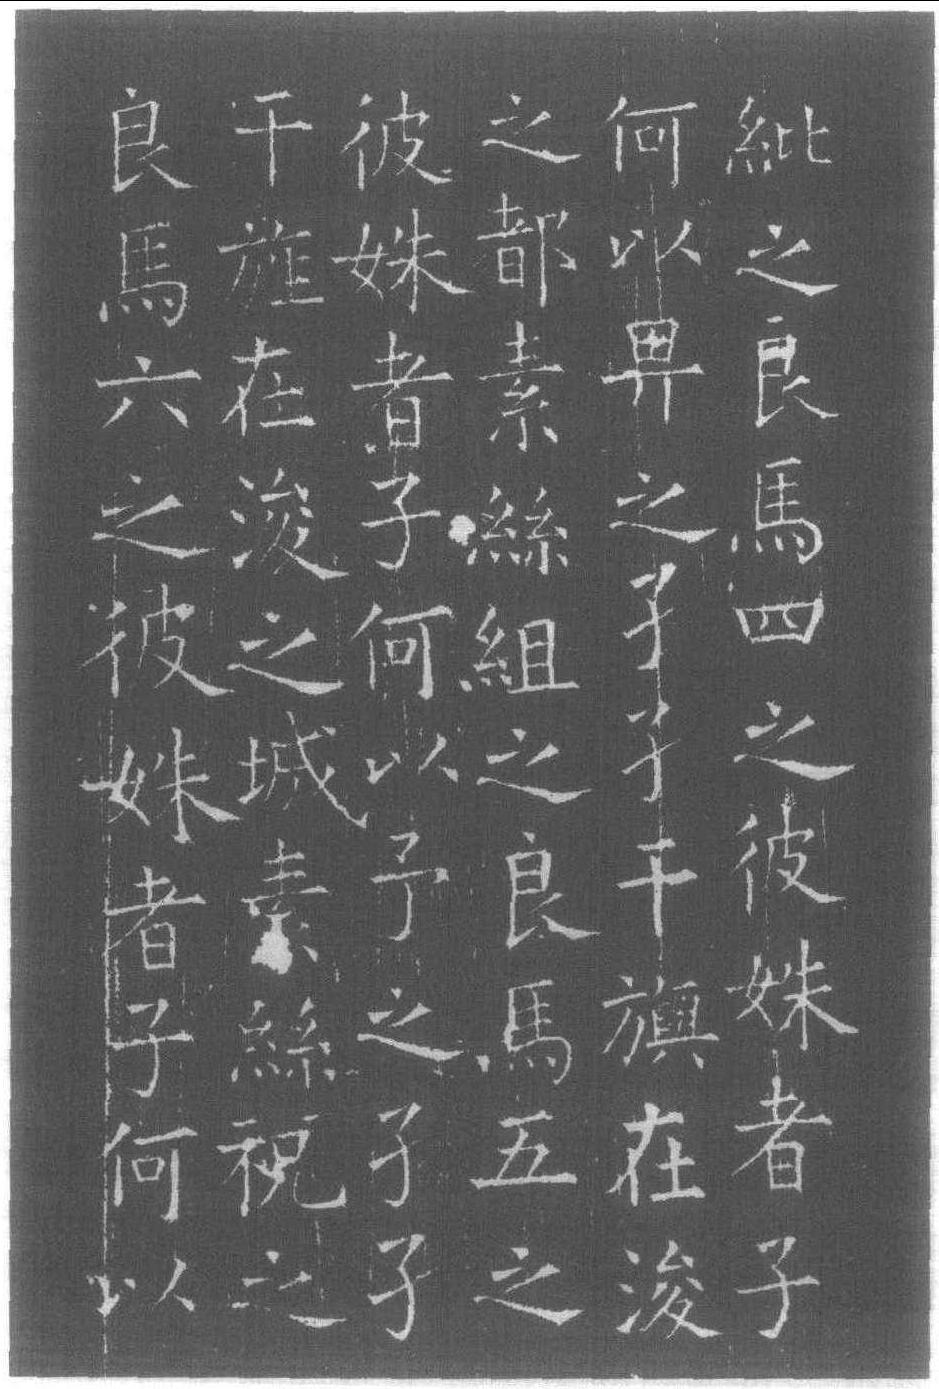 紕之良馬四之彼姝者子
何以畀之孑孑干旟在浚
之都素絲組之良馬五之
彼姝者子何以予之孑孑
干旌在浚之城素絲祝之
良馬六之彼姝者子何以